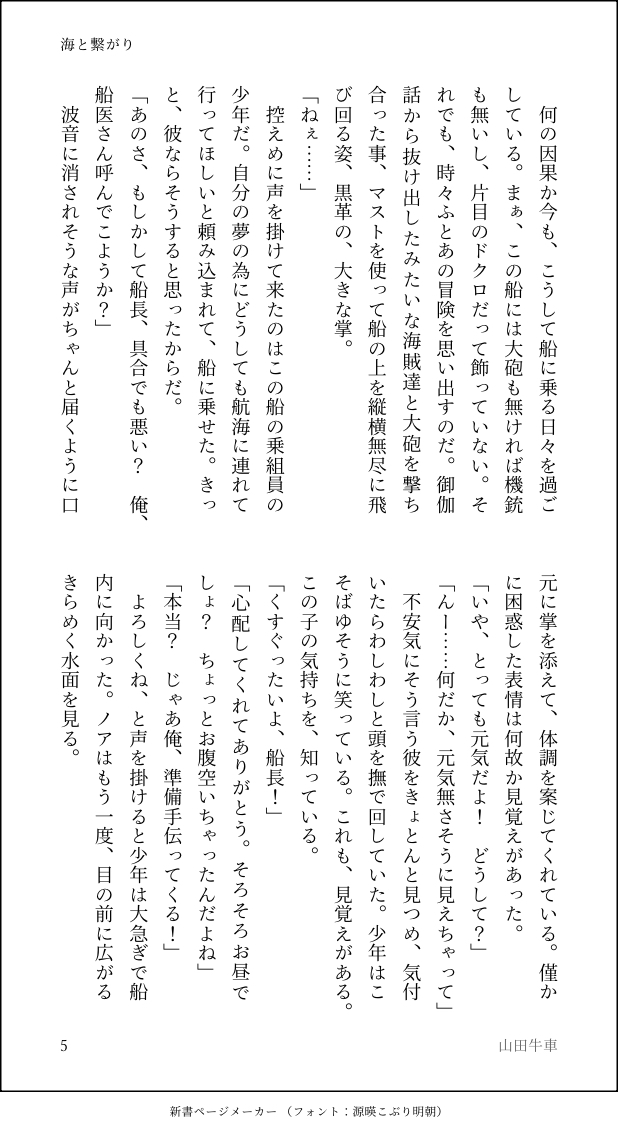 海と繋がり
　何の因果か今も、こうして船に乗る日々を過ご
している。まぁ、この船には大砲も無ければ機銃
も無いし、片目のドクロだって飾っていない。そ
れでも、時々ふとあの冒険を思い出すのだ。御伽
話から抜け出したみたいな海賊達と大砲を撃ち
合った事、マストを使って船の上を縦横無尽に飛
び回る姿、黒革の、大きな掌。
「ねぇ……」
　控えめに声を掛けて来たのはこの船の乗組員の
少年だ。自分の夢の為にどうしても航海に連れて
行ってほしいと頼み込まれて、船に乗せた。きっ
と、彼ならそうすると思ったからだ。
「あのさ、もしかして船長、具合でも悪い？　俺、
船医さん呼んでこようか？」
　波音に消されそうな声がちゃんと届くように口
元に掌を添えて、体調を案じてくれている。僅か
に困惑した表情は何故か見覚えがあった。
「いや、とっても元気だよ！　どうして？」
「んー……何だか、元気無さそうに見えちゃって」
　不安気にそう言う彼をきょとんと見つめ、気付
いたらわしわしと頭を撫で回していた。少年はこ
そばゆそうに笑っている。これも、見覚えがある。
この子の気持ちを、知っている。
「くすぐったいよ、船長！」
「心配してくれてありがとう。そろそろお昼で
しょ？　ちょっとお腹空いちゃったんだよね」
「本当？　じゃあ俺、準備手伝ってくる！」
　よろしくね、と声を掛けると少年は大急ぎで船
内に向かった。ノアはもう一度、目の前に広がる
きらめく水面を見る。
5
山田牛車
新書ページメーカー（フォント：源暎こぶり明朝）